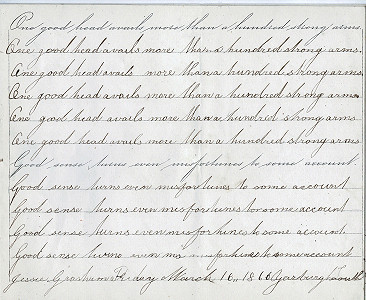 One good head avails more than a hundred strong arms.
One good head avails more than a hundred strong arms.
One good head avails more than a hundred strong arms.
One good head avails more than a hundred strong arms.
One good head avails more than a hundred strong arms
One good head avails more than a hundred strong arms
Good sense turns even misfortunes to some account.
Good sense turns even misfortunes to some account
Good sense turns even misfortunes to some account
Good sense turns even misfortunes to some account.
Good sense turns even mis misfortunes to some account
Jessie Graham Friday March 16, 1866